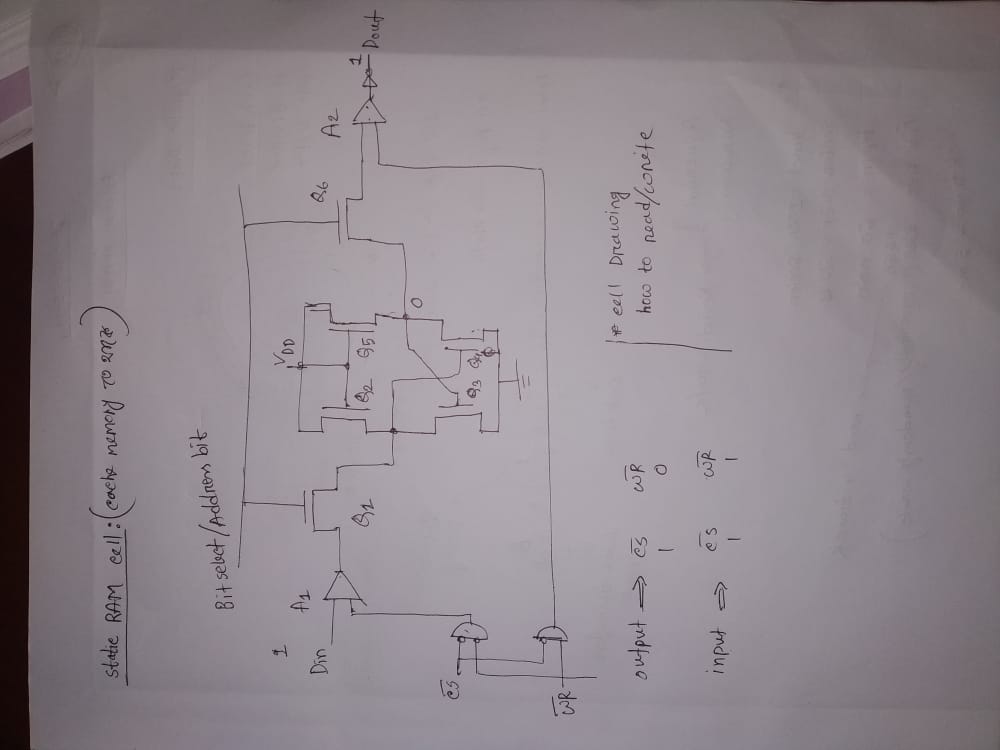 Static RAM cell: (cache memory
Bit select/Address bit
VDD
Q1
Q2
Q5
Q3
Q4
Q6
A1
A2
1
Din
1
Dout
0
CS
WR
output ⇒ CS WR
1 0
input ⇒ CS WR
1 1
* cell Drawing
how to read/write